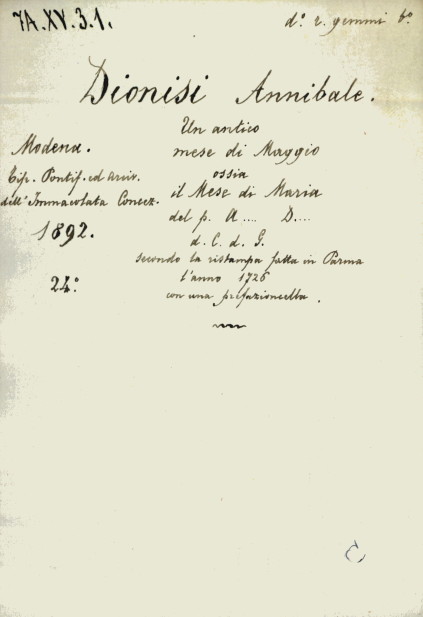 7A.XV.3.1.
d.° r. gemmi 6.°
Dionisi Annibale.
Un antico
mese di Maggio
ossia
il Mese di Maria
del p. A.... D....
d. C. d. G.
secondo la ristampa fatta in Parma
l'anno 1726
con una prefazioncella.
Modena.
Tip. Pontif. ed Arciv.
dell'Immacolata Concez.
1892.
24.°